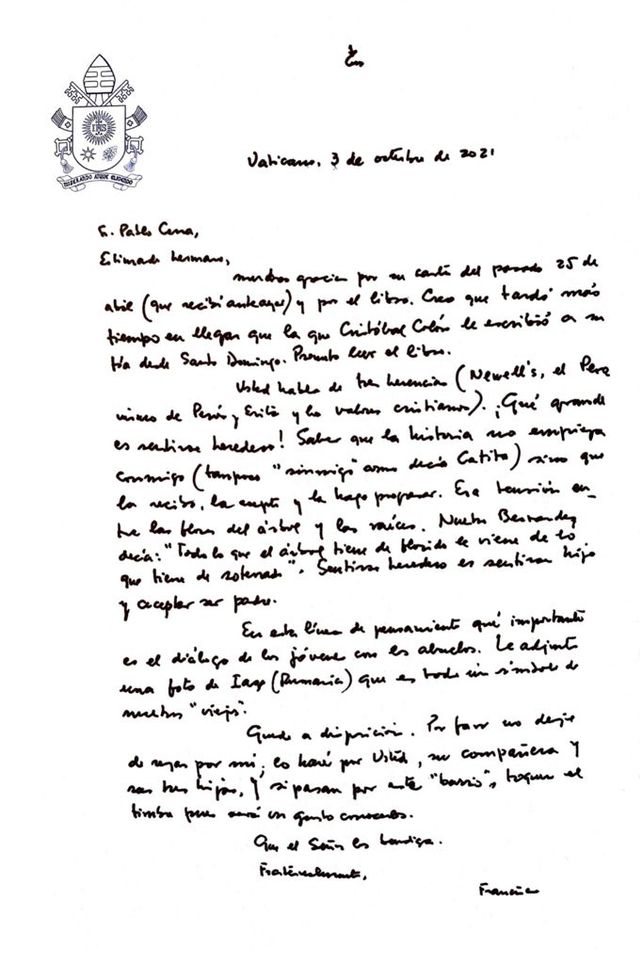 IHS
MISERANDO ATQUE ELIGENDO
Vaticano, 3 de octubre de 2021
Sr. Pablo
Estimado hermano,
muchas gracias por su carta del pasado 25 de
abril (que recibí anteayer) y por el libro. Creo que tardó más
tiempo en llegar que la que Cristóbal Colón le escribió a su
tía desde Santo Domingo. Prometo leer el libro.
Usted habla de tres herencias (Newell's, el Pero
nismo de Perón y Evita y los valores cristianos). ¡Qué grande
es sentirse heredero! Saber que la historia no empieza
conmigo (tampoco "sinmigo" como decía Catita) sino que
la recibo, la acepto y la hago progresar. Esa tensión en-
tre las flores del árbol y las raíces. Nuestro Bernárdez
decía: "Todo lo que el árbol tiene de florido le viene de lo
que tiene de soterrado". Sentirse heredero es sentirse hijo
y aceptar ser padre.
En esta línea de pensamiento qué importante
es el diálogo de los jóvenes con los abuelos. Le adjunto
una foto de (Rumania) que es todo un símbolo de
nuestros "viejos".
Quedo a disposición. Por favor no deje
de rezar por mí; lo haré por Usted, su compañera y
sus tres hijos. Y si pasan por este "barrio", toquen el
timbre pues será un gusto conocerlos.
Que el Señor los bendiga.
Fraternalmente,
Francisco